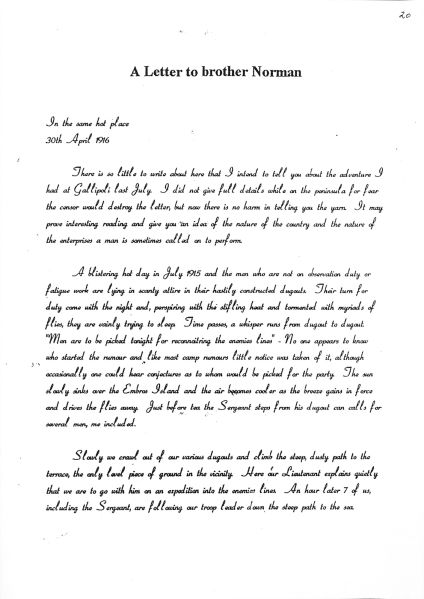 20
A Letter to brother Norman
In the same hot place
30th April 1916
There is so little to write about here that I intend to tell you about the adventure I
had at Gallipoli last July. I did not give full details while on the peninsula for fear
the censor would destroy the letter, but now there is no harm in telling you the yarn. It may
prove interesting reading and give you an idea of the nature of the country and the nature of
the enterprises a man is sometimes called on to perform.
A blistering hot day in July 1915 and the men who are not on observation duty or
fatigue work are lying in scanty attire in their hastily constructed dugouts. Their turn for
duty come with the night and, perspiring with the stifling heat and tormented with myriads of
flies, they are vainly trying to sleep. Time passes, a whisper runs from dugout to dugout.
"Men are to be picked tonight for reconnoitring the enemies lines" - No one appears to know
who started the rumour and like most camp rumours little notice was taken of it, although
occasionally one could hear conjectures as to whom would be picked for the party. The sun
slowly sinks over the Embros Island and the air becomes cooler as the breeze gains in force
and drives the flies away. Just before tea the Sergeant steps from his dugout can calls for
several men, me included.
Slowly we crawl out of our various dugouts and climb the steep, dusty path to the
terrace, the only level piece of ground in the vicinity. Here our Lieutenant explains quietly
that we are to go with him on an expedition into the enemies lines. An hour later 7 of us,
including the Sergeant, are following our troop leader down the steep path to the sea.